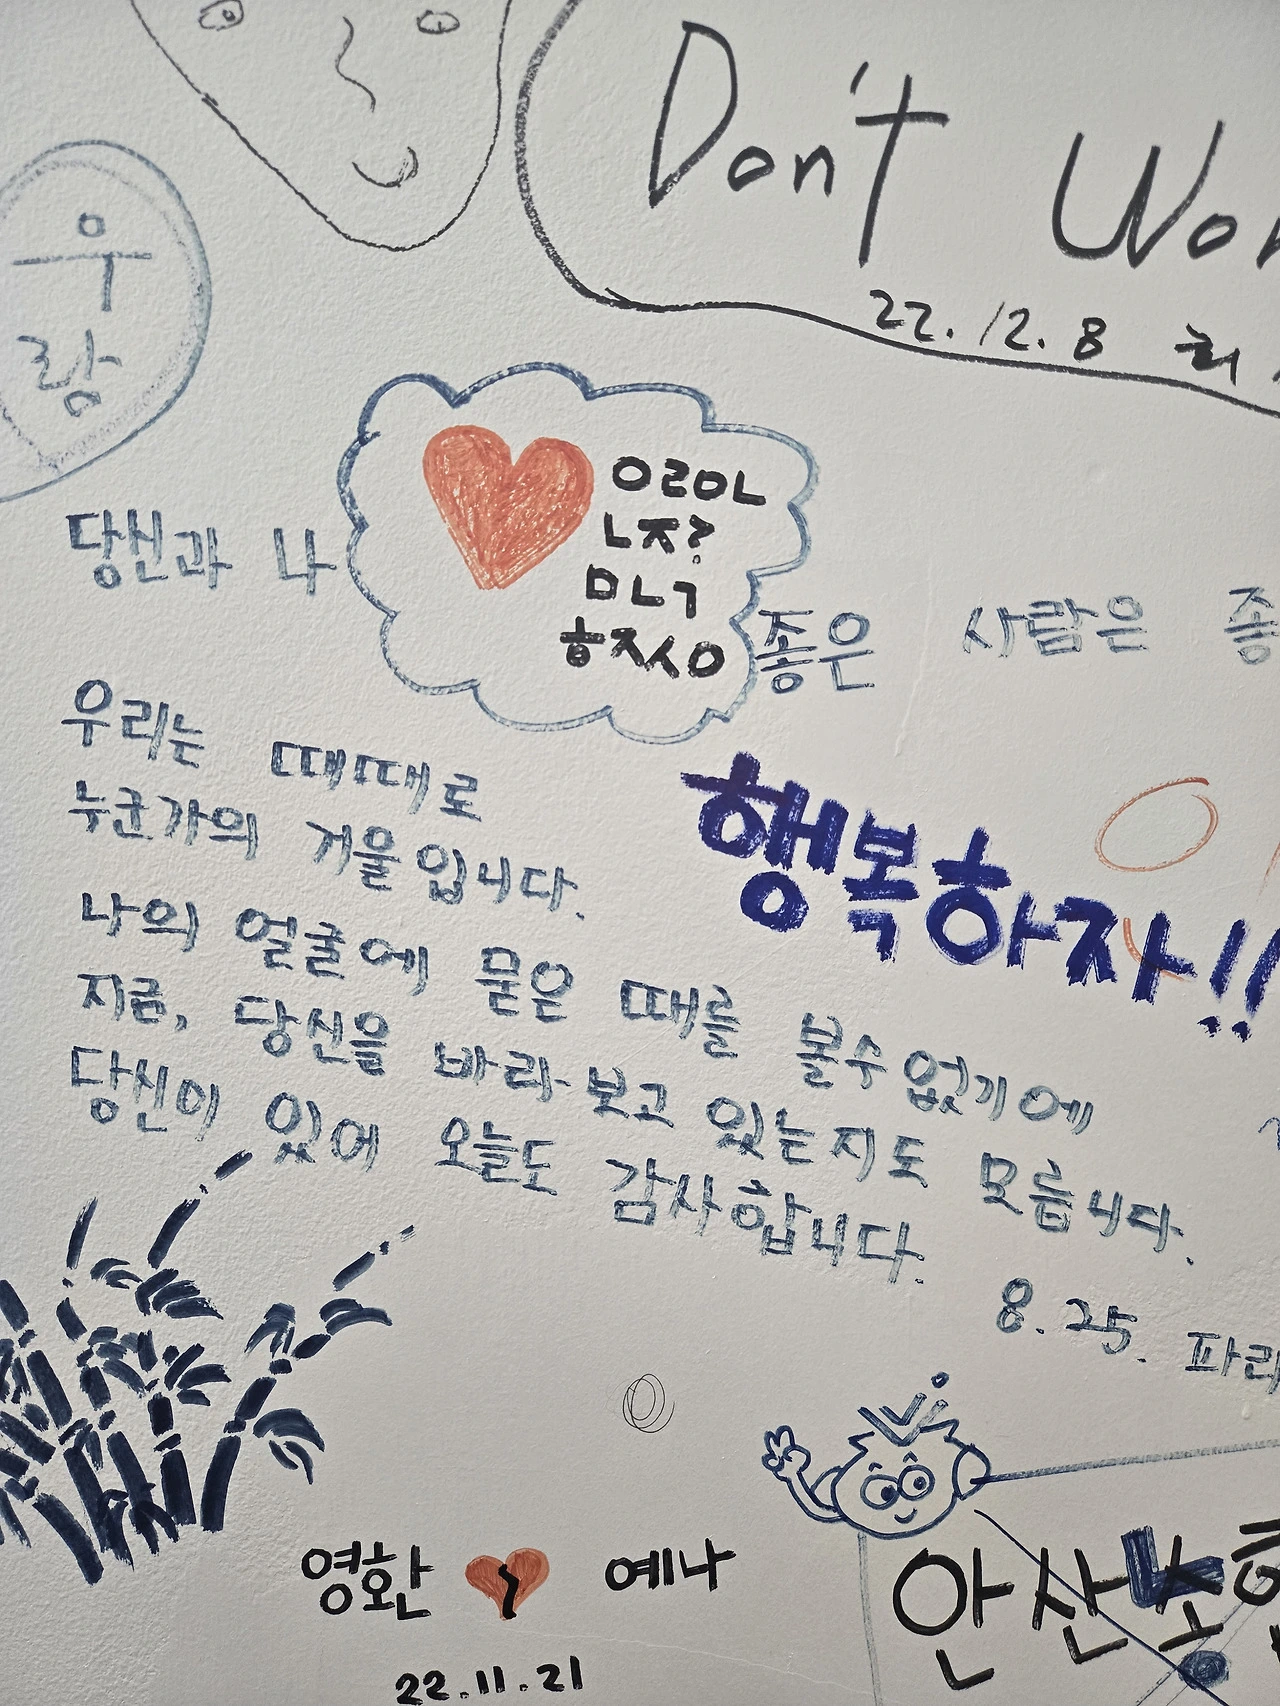 Don't
22.12.8
우
람
으르아
ㄴㅈ?
ㅁㄴㄱ
당신과 나
좋은 사람은
우리는 때때로
누군가의 거울입니다.
행복하자!!
나의 얼굴에 묻은 때를 볼수 없기에
지금, 당신을 바라보고 있는지도 모릅니다.
당신이 있어 오늘도 감사합니다.
8.25.
영환 예나
22.11.21
안산